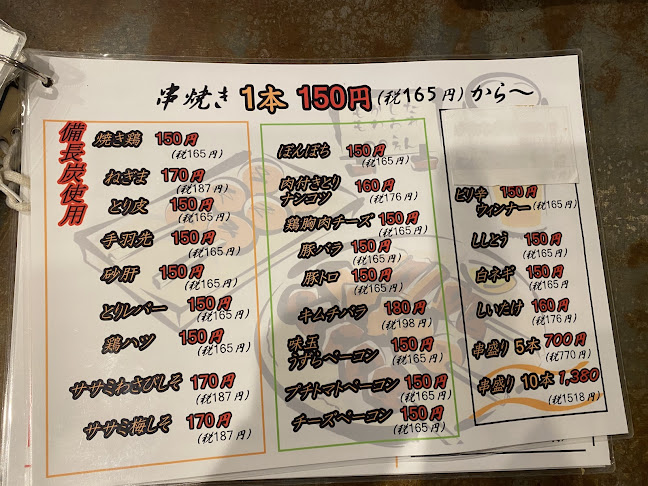 串焼き 1本 150円 (税165円) から〜
備長炭使用
焼き鶏 150円
(税165円)
ねぎま 170円
(税187円)
とり皮 150円
(税165円)
手羽先 150円
(税165円)
砂肝 150円
(税165円)
とりレバー 150円
(税165円)
鶏ハツ 150円
(税165円)
ササミわさびしそ 170円
(税187円)
ササミ梅しそ 170円
(税187円)
ぼんぼち 150円
(税165円)
肉付きとり
ナンコツ 160円
(税176円)
鶏胸肉チーズ 150円
(税165円)
豚バラ 150円
(税165円)
豚トロ 150円
(税165円)
キムチバラ 180円
(税198円)
味玉
うずらベーコン 150円
(税165円)
プチトマトベーコン 150円
(税165円)
チーズベーコン 150円
(税165円)
ピリ辛
ウィンナー 150円
(税165円)
ししとう 150円
(税165円)
白ネギ 150円
(税165円
しいたけ 160円
(税176円)
串盛り 5本 700円
(税770円)
串盛り 10本 1,380
(税1518円)